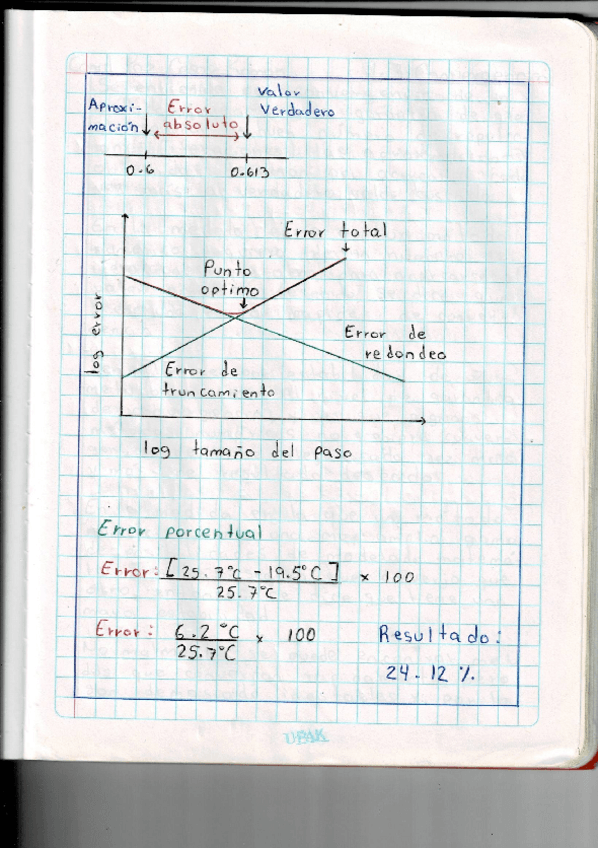 Aproxi-
mación
Error
absoluto
Valor
Verdadero
0.6
0.613
Error total
Punto
optimo
Error de
redondeo
log error
Error de
truncamiento
log tamaño del paso
Error porcentual
Error: [25.7°C - 19.5°C] x 100
25.7°C
Error: 6.2°C x 100
25.7°C
Resultado:
24.12 %